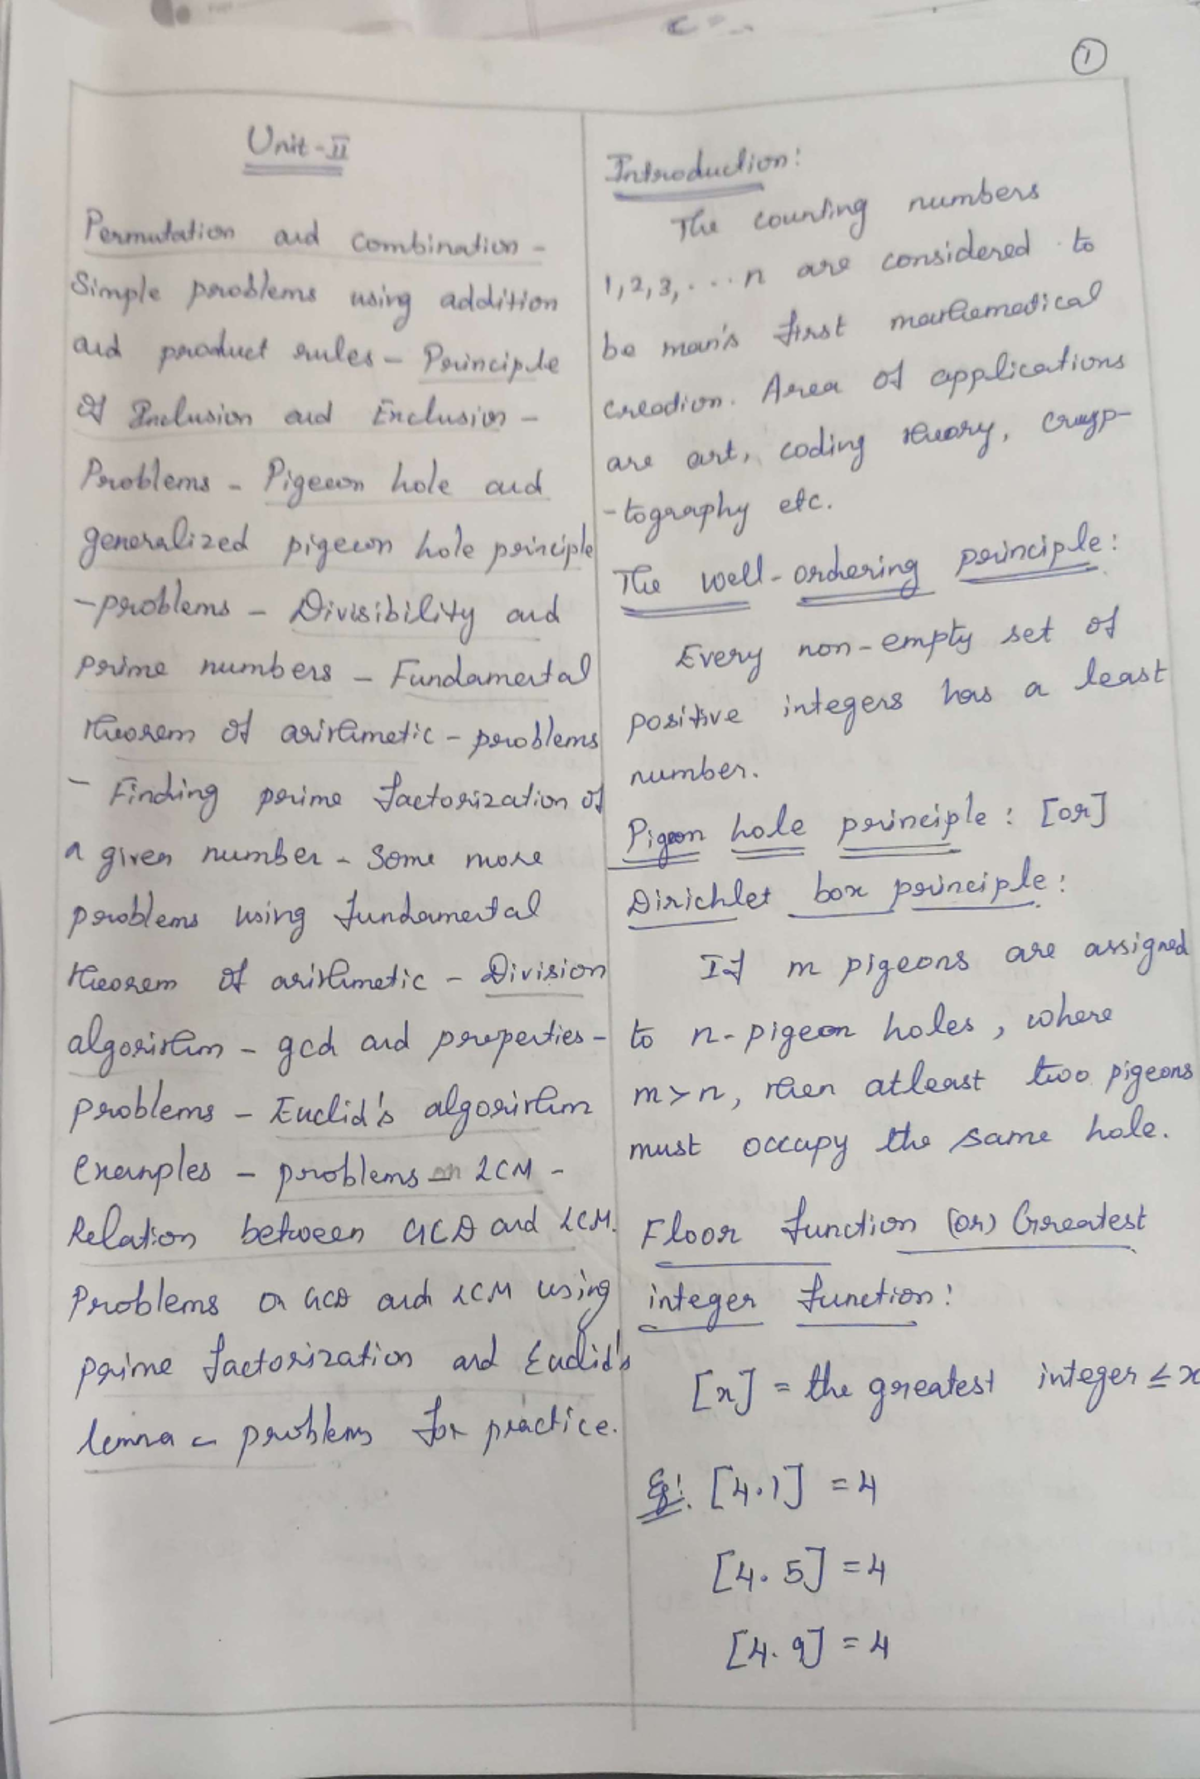 1
Unit-II
Permutation and combination -
Simple problems using addition
and product rules - Principle
of Inclusion and Exclusion -
Problems - Pigeon hole and
generalized pigeon hole principle
- problems - Divisibility and
prime numbers - Fundamental
theorem of arithmetic - problems
- Finding prime factorization of
a given number - Some more
problems using fundamental
theorem of arithmetic - Division
algorithm - gcd and properties -
problems - Euclid's algorithm
Examples - problems on LCM -
Relation between GCD and LCM.
Problems on GCD and LCM using
prime factorization and Euclid's
lemma - problems for practice.
Introduction:
The counting numbers
1, 2, 3, ... n are considered to
be man's first mathematical
creation. Area of applications
are art, coding theory, cryp-
-tography etc.
The well-ordering principle:
Every non-empty set of
positive integers has a least
number.
Pigeon hole principle: [or]
Dirichlet box principle:
If m pigeons are assigned
to n-pigeon holes, where
m > n, then atleast two pigeons
must occupy the same hole.
Floor function (or) Greatest
integer function:
[x] = the greatest integer ≤ x
Eg: [4.1] = 4
[4.5] = 4
[4.9] = 4